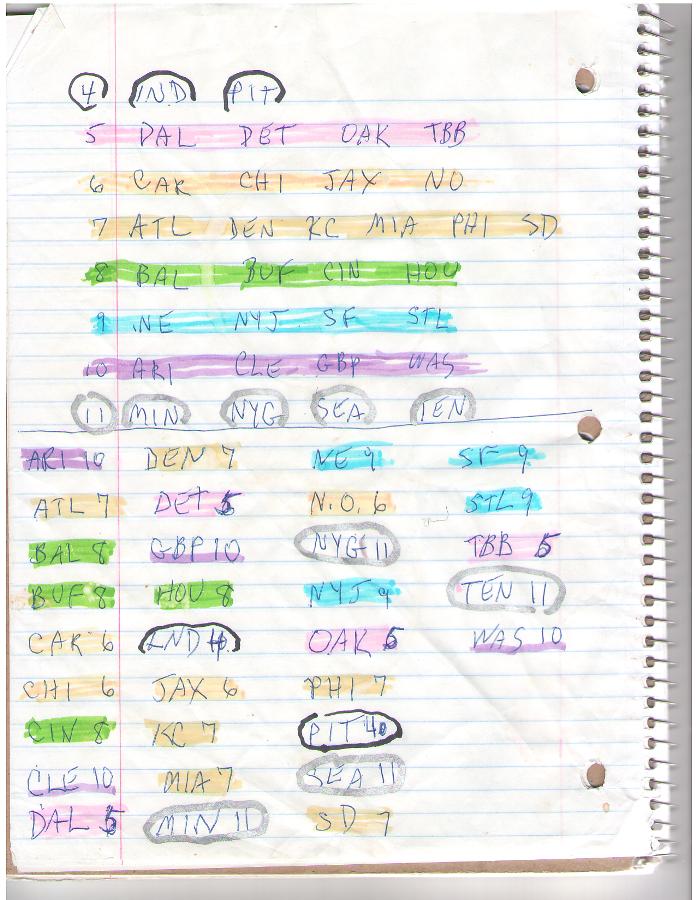 4 IND PIT
5 DAL DET OAK TBB
6 CAR CHI JAX NO
7 ATL DEN KC MIA PHI SD
8 BAL BUF CIN HOU
9 NE NYJ SF STL
10 ARI CLE GBP WAS
11 MIN NYG SEA TEN
ARI 10 DEN 7 NE 9 SF 9
ATL 7 DET 5 N.O. 6 STL 9
BAL 8 GBP 10 NYG 11 TBB 5
BUF 8 HOU 8 NYJ 9 TEN 11
CAR 6 IND 4 OAK 5 WAS 10
CHI 6 JAX 6 PHI 7
CIN 8 KC 7 PIT 4
CLE 10 MIA 7 SEA 11
DAL 5 MIN 11 SD 7